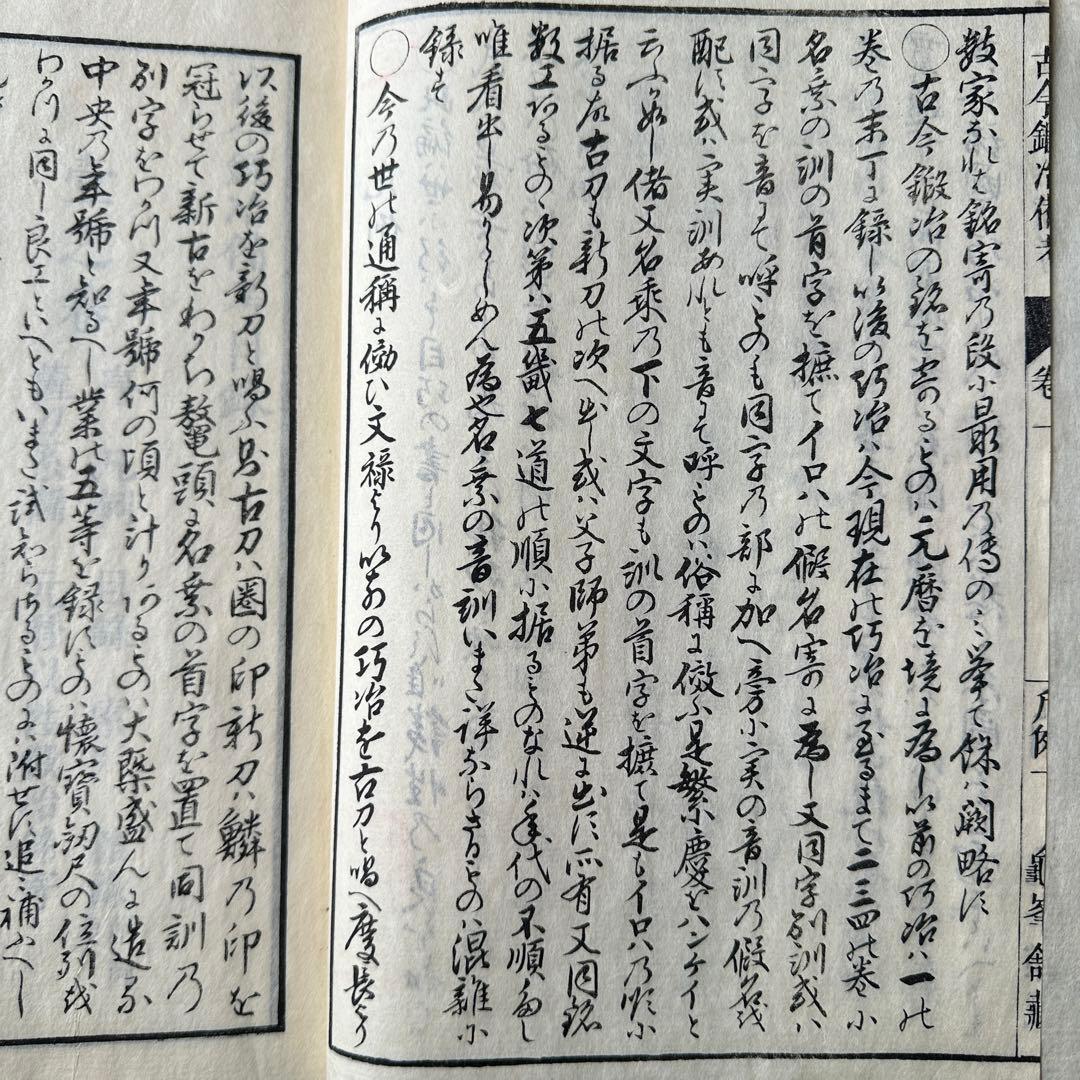 古今鍛冶備考 卷一 凡例 一 龜峯舎藏
数家なれは銘寄乃段小最用乃傳のミ挙て餘ハ闕略に
○古今鍛冶の銘を寄るものハ元暦を境に為し以前の巧冶ハ一の
巻乃末丁に録し以後の巧冶ハ今現在の巧冶に至るまて二三四の巻小
名乗の訓の首字を摭てイロハの假名寄に為し又同字別訓或ハ
同字を音にて呼ものも同字乃部に加へ旁小実の音訓乃假名を
配に或ハ実訓あれとも音にて呼ものハ俗稱に倣ふ是繁慶をハンケイと
云ふ如し偖又名乗乃下の文字も訓の首字を摭て是もイロハ乃順小
据る故古刀も新刀の次へ出し或ハ父子師弟も逆に出に所有又同銘
数工あるものゝ次第ハ五畿七道の順小据るものなれハ年代の不順多し
唯看出し易からしめん為也名乗の音訓いまた詳ならさるものハ混雜小
録す
○今乃世の通稱に倣ひ文禄より以前の巧冶を古刀と唱へ慶長より
以後の巧冶を新刀と唱ふ則古刀ハ圈の印新刀ハ鱗乃印を
冠らせて新古をわかち鼇頭に名乗の首字を置て同訓乃
別字をわかつ又年號何の頃と計りあるものハ大槩盛んに造る
中央乃年號と知るへし業の五等を録にものハ懐寳劔尺の位列を
わかつに同し良工といへともいまた試知らさるものにハ附せに追て補ふへし